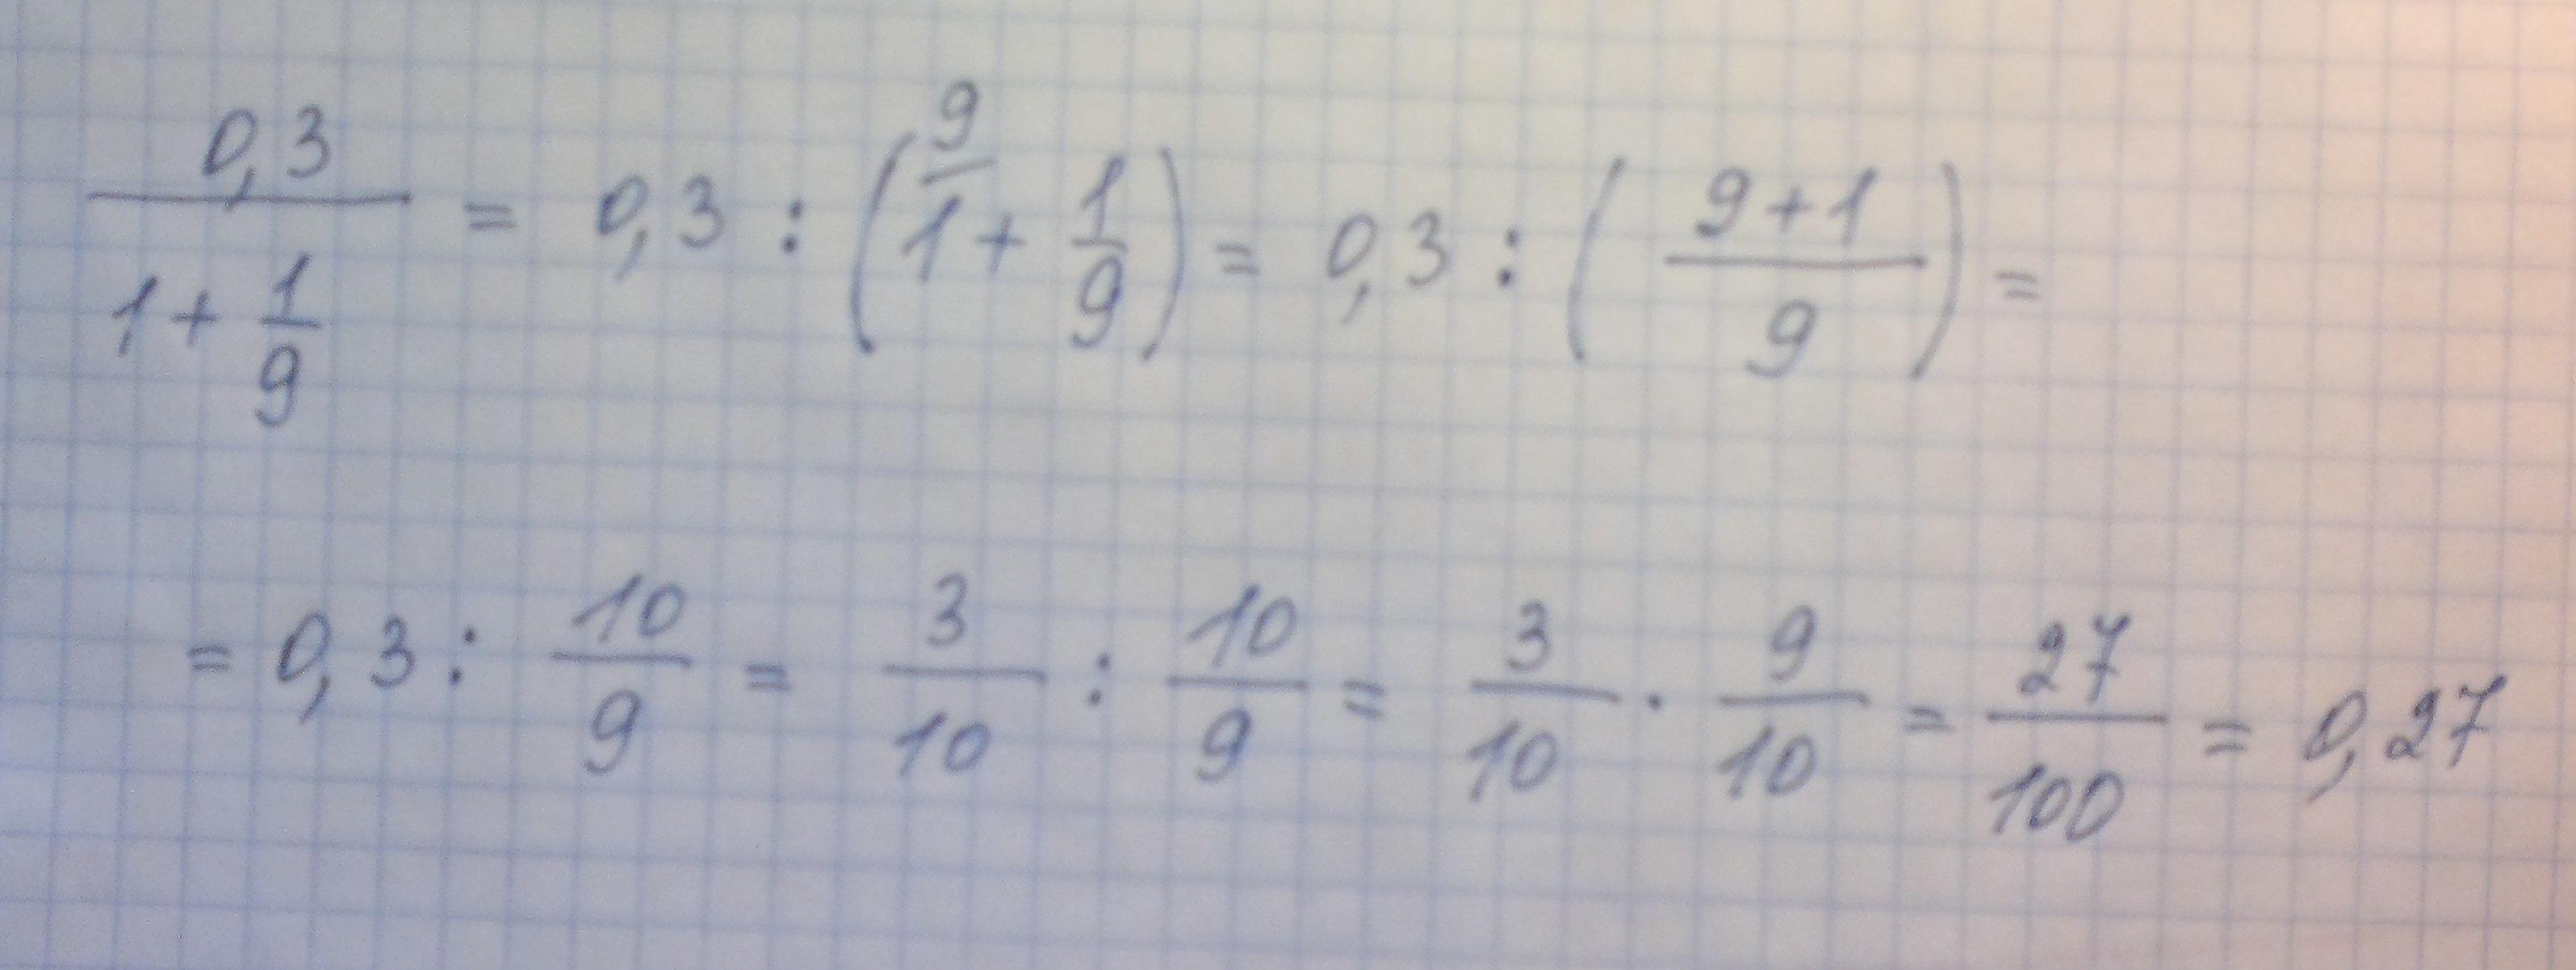 0,3/(1+1/9) = 0,3 : (⁹⁄1 + 1/9) = 0,3 : ((9+1)/9) =
= 0,3 : 10/9 = 3/10 : 10/9 = 3/10 · 9/10 = 27/100 = 0,27